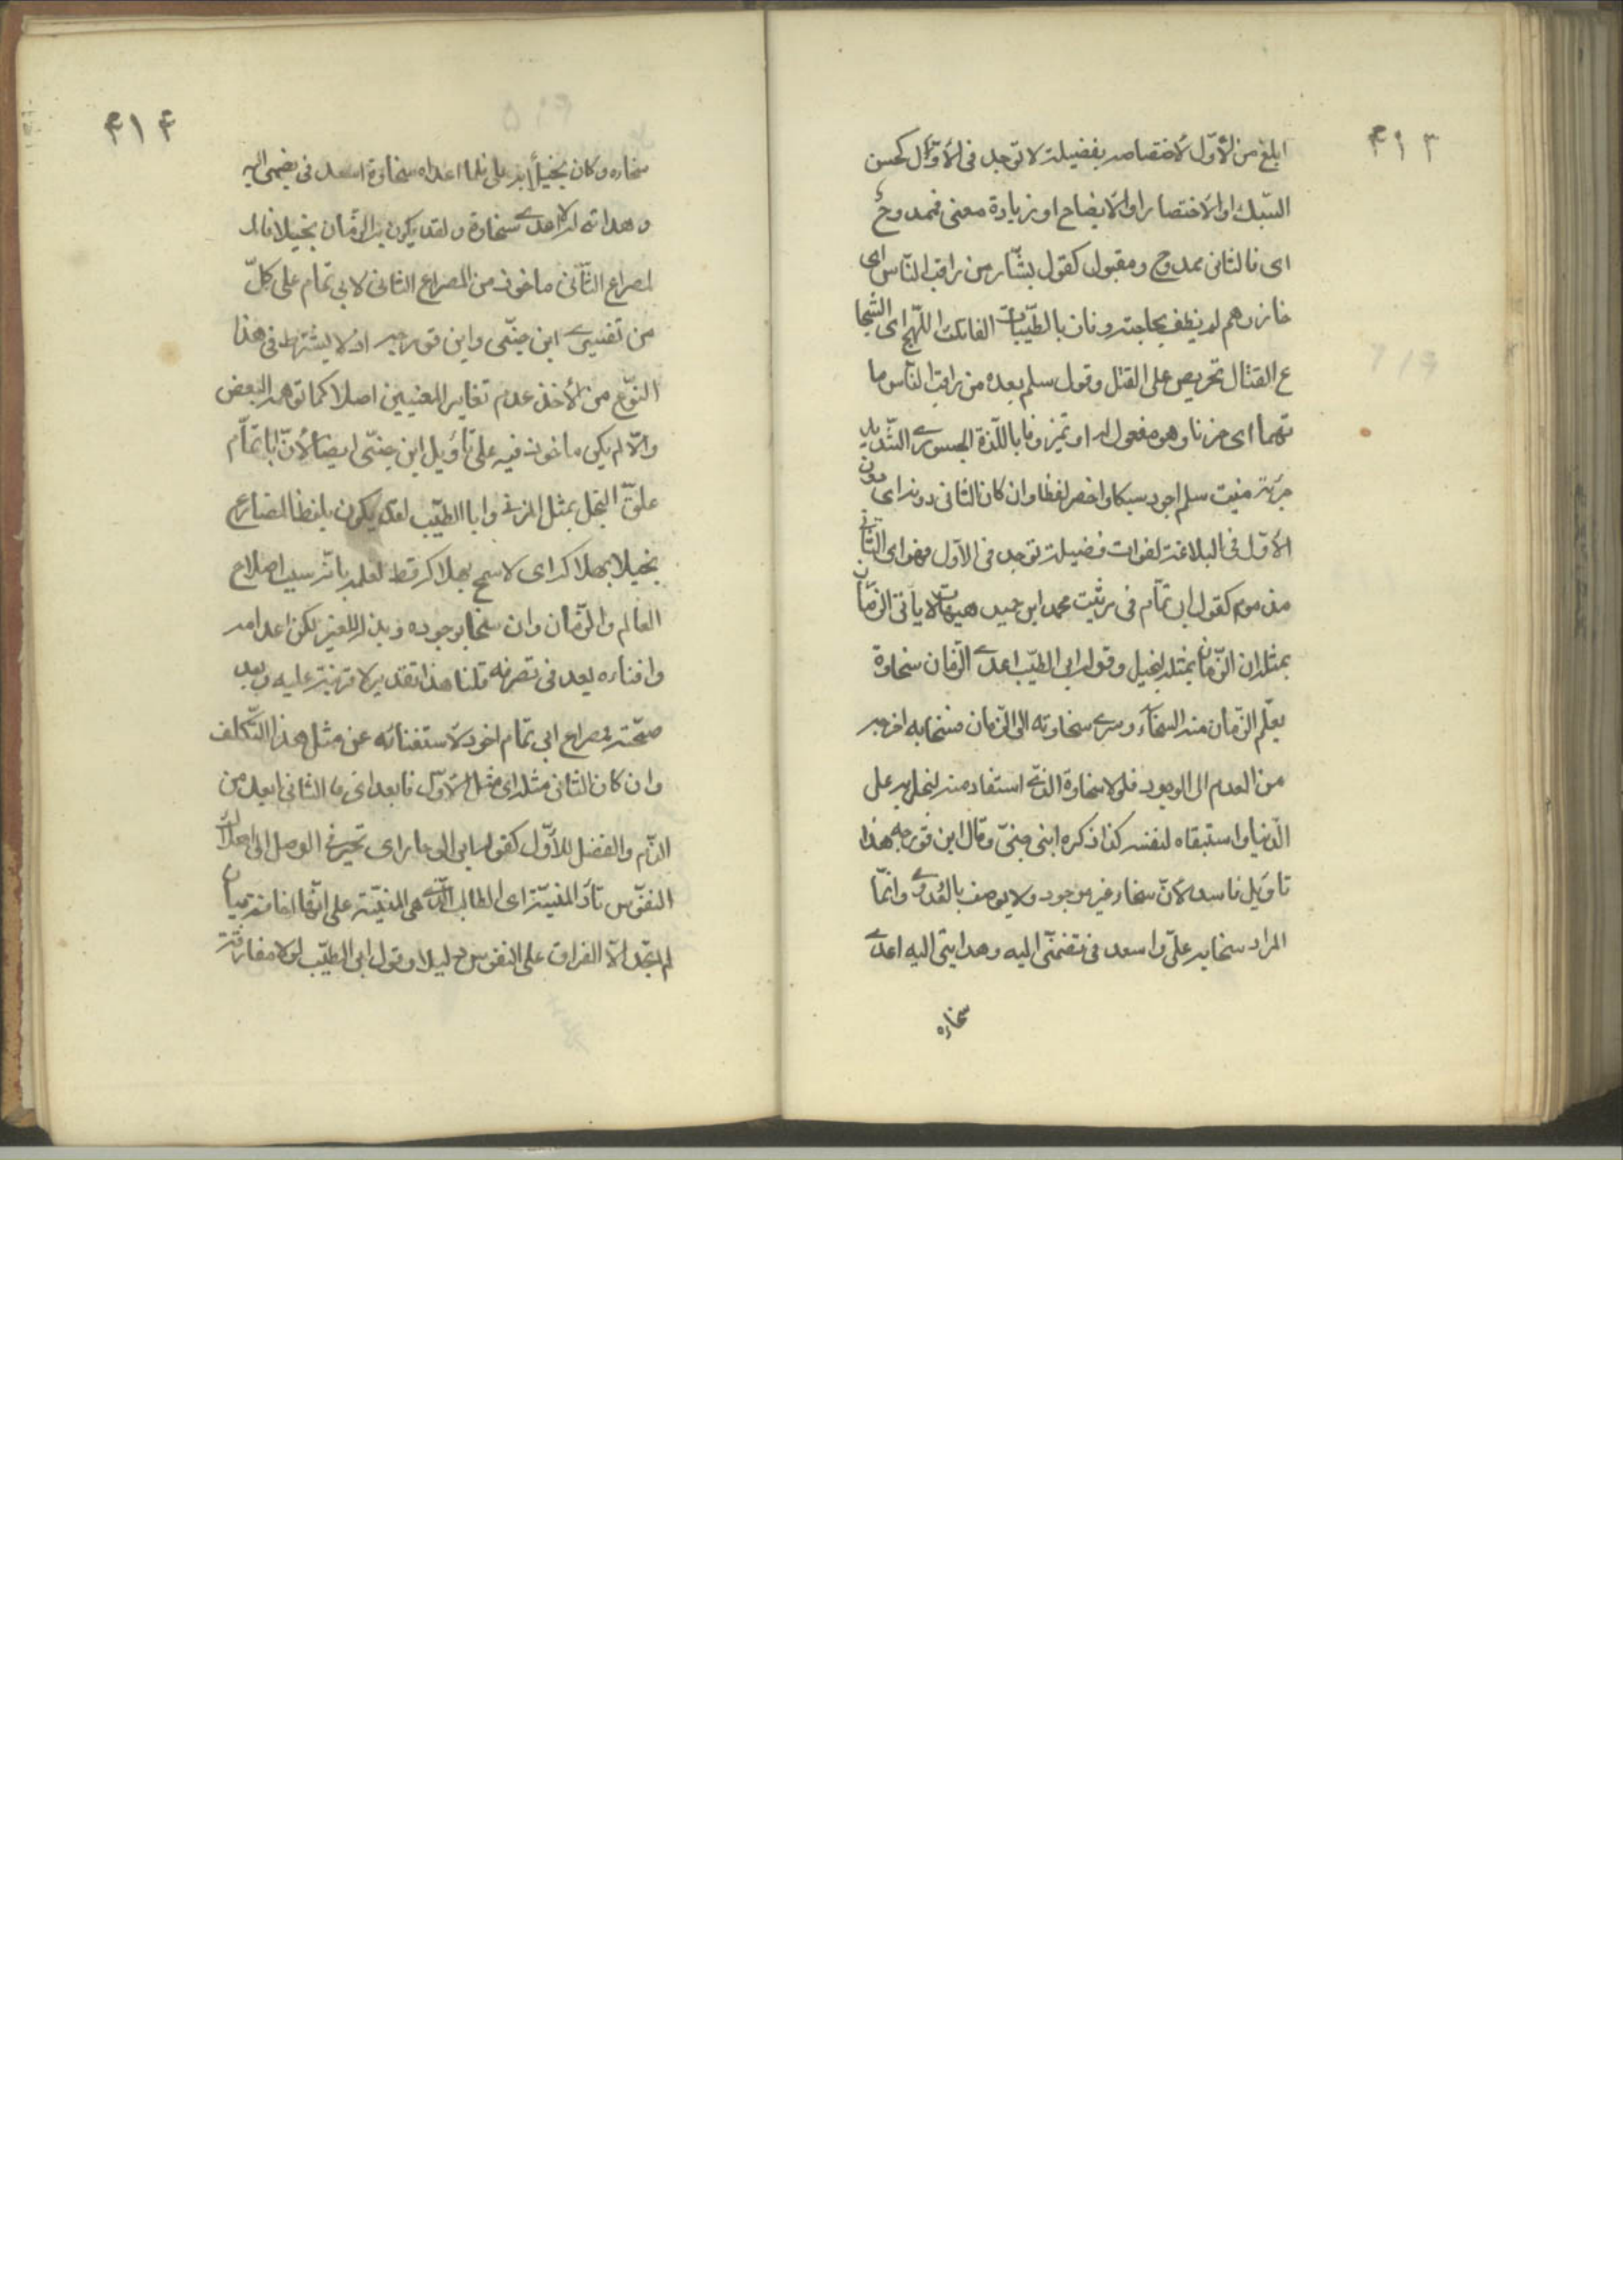 ۴۱۳
ابلغ من الأوّل لأختصاصه بفضيلة لا توجد فى الأوّل كحسن
السّبك او الأختصار او الأيضاح او زيادة معنى فممدوح
اى فالثانى ممدوح ومقبول كقول بشّار من راقب النّاس اى
حاذرهم لم يظفر بحاجته وفاز بالطّيّبات الفاتك اللّهج اى الشجا
ع القتّال تحريص على القتل وقول سلم بعده من راقب النّاس ما
ت همّا اى حزنا وهو مفعول له او تميز وفاز باللّذة الجسور الشّديد
جرءة فبيت سلم اجود سبكا واخصر لفظا وان كان الثانى دونه اى دون
الأوّل فى البلاغة لفوات فضيلة توجد فى الأوّل فهو اى الثّانى
مذموم كقول ابى تمّام فى مرثيت محمد ابن حميد هيهات لا يأتى الزمّان
بمثله ان الزّمان بمثله لبخيل وقول ابى الطيّب اعدى الزّمان سخاوة
يعلّم الزّمان منه السّخآء وسرى سخاوته الى الزّمان فسخابه اخرجه
من العدم الى الوجود فلولا سخاوة الذّى استفاد منه لبخل به على
الدّنيا واستبقاه لنفسه كذا ذكره ابنى جنىّ وقال ابن فورجه هذا
تاويل فاسد لأنّ سخاء غير موجود ولا يوصف بالعدوى وانّما
المراد سخابه علىّ واسعد فى تضمنّى اليه وهدايتى اليه اعدى
سخاءه
۴۱۴
سخاءه وكان بخيلأ به على فلما اعداه سخاوة اسعد فى بضمى اليه
وهدانى له لا اعدى سخاوة ولقد يكون به الزّمان بخيلا فالـ
لمصراع الثّانى ماخوذ من المصراع الثانى لابى تمّام على كلّ
من تفسيرى ابن جنّى وابن فورجه اذ لا يشترط فى هذا
النّوع من الأخذ عدم تغاير المعنيين اصلا كما توهمه البعض
والّا لم يكن ماخوذ فيه على تأويل ابن جنّى ايضا لأنّ ابا تمّام
علّق البخل بمثل المرثى وابا الطيّب لقد يكون بلفظ المضارع
بخيلا بهلاكه اى لا سمح بهلاكه قط لعلمه بانّه سبب اصلاح
العالم والزّمان وان سخا بوجوده وبذله للغير لكن اعدامه
وافناءه بعد فى تصرفه قلنا هذا تقدير لا قرينة عليه وبعد
صحّته فمصراع ابى تمام اجود لاستغنائه عن مثل هذا التّكلف
وان كان الثانى مثله اى مثل الأوّل فابعد اى فالثانى ابعد من
الذّم والفضل للأوّل كقول ابى
النفوس
لم يجد الّا الفراق على النفوس دليلا وقول ابى الطيّب لولا مفارقة